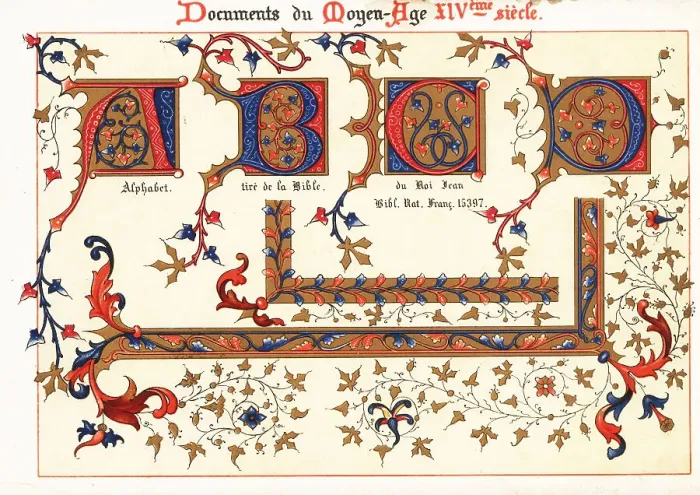 Documents du Moyen-Age XIVème siècle.
A B C D
Alphabet. tiré de la Bible. du Roi Jean
Bibl. Nat. Franç. 15397.